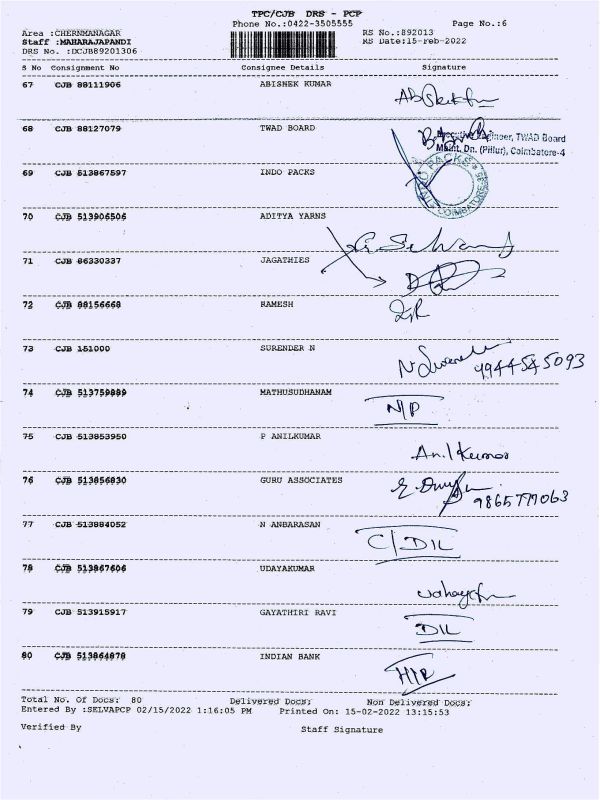 TPC/CJB DRS - PCP
Phone No.:0422-3505555 Page No.:6
Area :CHERNMANAGAR RS No.:892013
Staff :MAHARAJAPANDI RS Date:15-Feb-2022
DRS No. :DCJB89201306
S No Consignment No Consignee Details Signature
67 CJB 88111906 ABISHEK KUMAR
68 CJB 88127079 TWAD BOARD
Executive Engineer, TWAD Board
Maint. Dn. (Pillur), Coimbatore-4
69 CJB 513867597 INDO PACKS
70 CJB 513906506 ADITYA YARNS
G. Selvam
71 CJB 86330337 JAGATHIES
72 CJB 88156668 RAMESH
73 CJB 151000 SURENDER N
9944545093
74 CJB 513759889 MATHUSUDHANAM
N/P
75 CJB 513853950 P ANILKUMAR
Anil Kumar
76 CJB 513856830 GURU ASSOCIATES
77 CJB 513884052 N ANBARASAN
C/DIL
78 CJB 513867606 UDAYAKUMAR
79 CJB 513915917 GAYATHIRI RAVI
DIL
80 CJB 513864878 INDIAN BANK
Total No. Of Docs: 80 Delivered Docs: Non Delivered Docs:
Entered By :SELVAPCP 02/15/2022 1:16:05 PM Printed On: 15-02-2022 13:15:53
Verified By Staff Signature